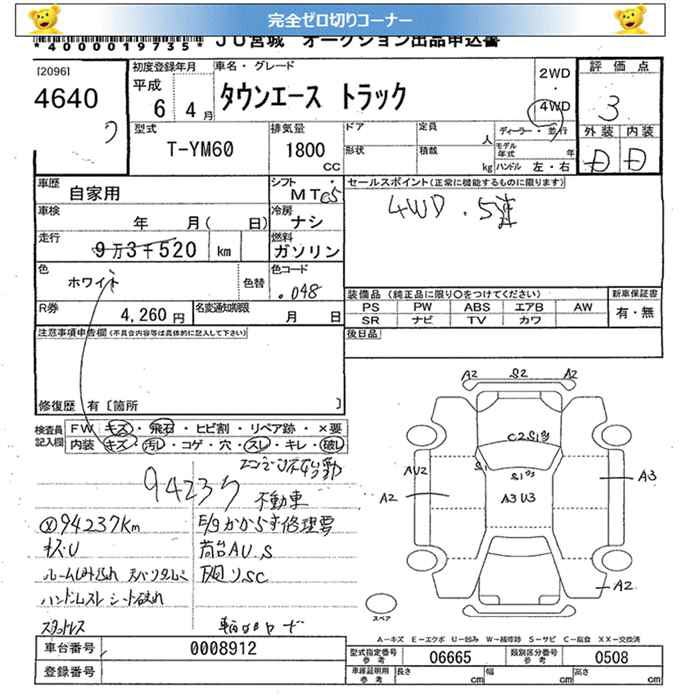 完全ゼロ切りコーナー
*4000019735* JU宮城 オークション出品申込書
[2096]
4640
初度登録年月
平成
6 4月
車名・グレード
タウンエース トラック
2WD
4WD
評価点
3
外装 内装
D D
型式
T-YM60
排気量
1800
cc
ドア
形状
定員
人
積載
kg
ディーラー・並行
モデル年式 年
ハンドル 左・右
車歴
自家用
シフト
MT C5
セールスポイント(正常に機能するものに限ります)
4WD・5速
車検
年 月( 日)
冷房
ナシ
走行
9万3千520 km
燃料
ガソリン
色
ホワイト
色替
色コード
048
R券
4,260円
名変通知期限
月 日
装備品(純正品に限り○をつけてください)
PS PW ABS エアB AW
SR ナビ TV カワ
新車保証書
有・無
注意事項申告欄(不具合内容等は具体的に記入して下さい)
後日品
修復歴 有〔箇所 〕
検査員記入欄
FW キズ・飛石・ヒビ割・リペア跡・×要
内装 キズ・汚れ・コゲ・穴・スレ・キレ・破れ
エンジン不始動
94237
不動車
94237km
E/gかからず修理要
キズU
荷台AU.S
下廻りSC
ハンドルスレ シート破れ
スタッドレス
A2 S2 A2
C2S1
S1
S1
AU2
A2
A3U3
A3
A2
スペア
A-キズ E-エクボ U-凹み W-補修跡 S-サビ C-腐食 XX-交換済
車台番号
0008912
登録番号
型式指定番号
参考
06665
類別区分番号
参考
0508
車庫証明用
参考
長さ cm
幅 cm
高さ cm